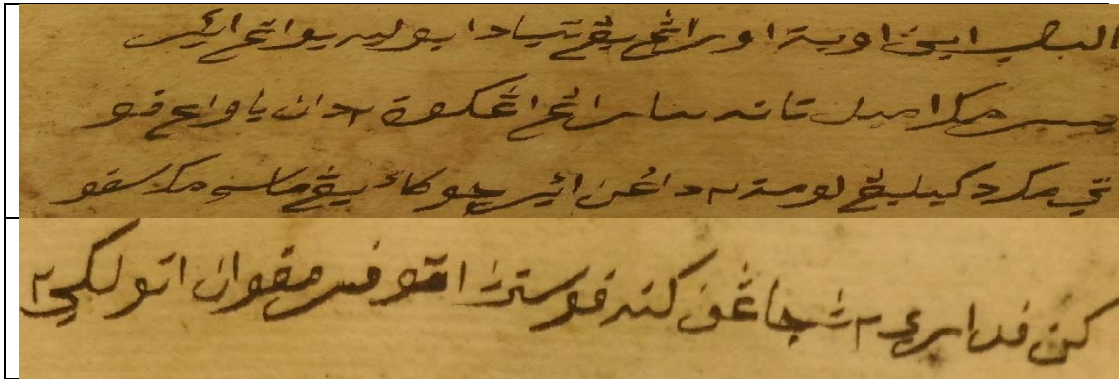 الباب اين اوبة اورڠ يڠ تياد بوليه بواڠ اير
بسر مک امبيل تانه سارڠ اڠکوة ٢ دان باوڠ فو
ته مک دکيليڠ لومة ٢ داڠن اير چوکاء يڠ ماسم مک سفو
کن فد اري ٢ ث جاڠن کنه فوستث اتو فرمفوان اتو لکي ٢